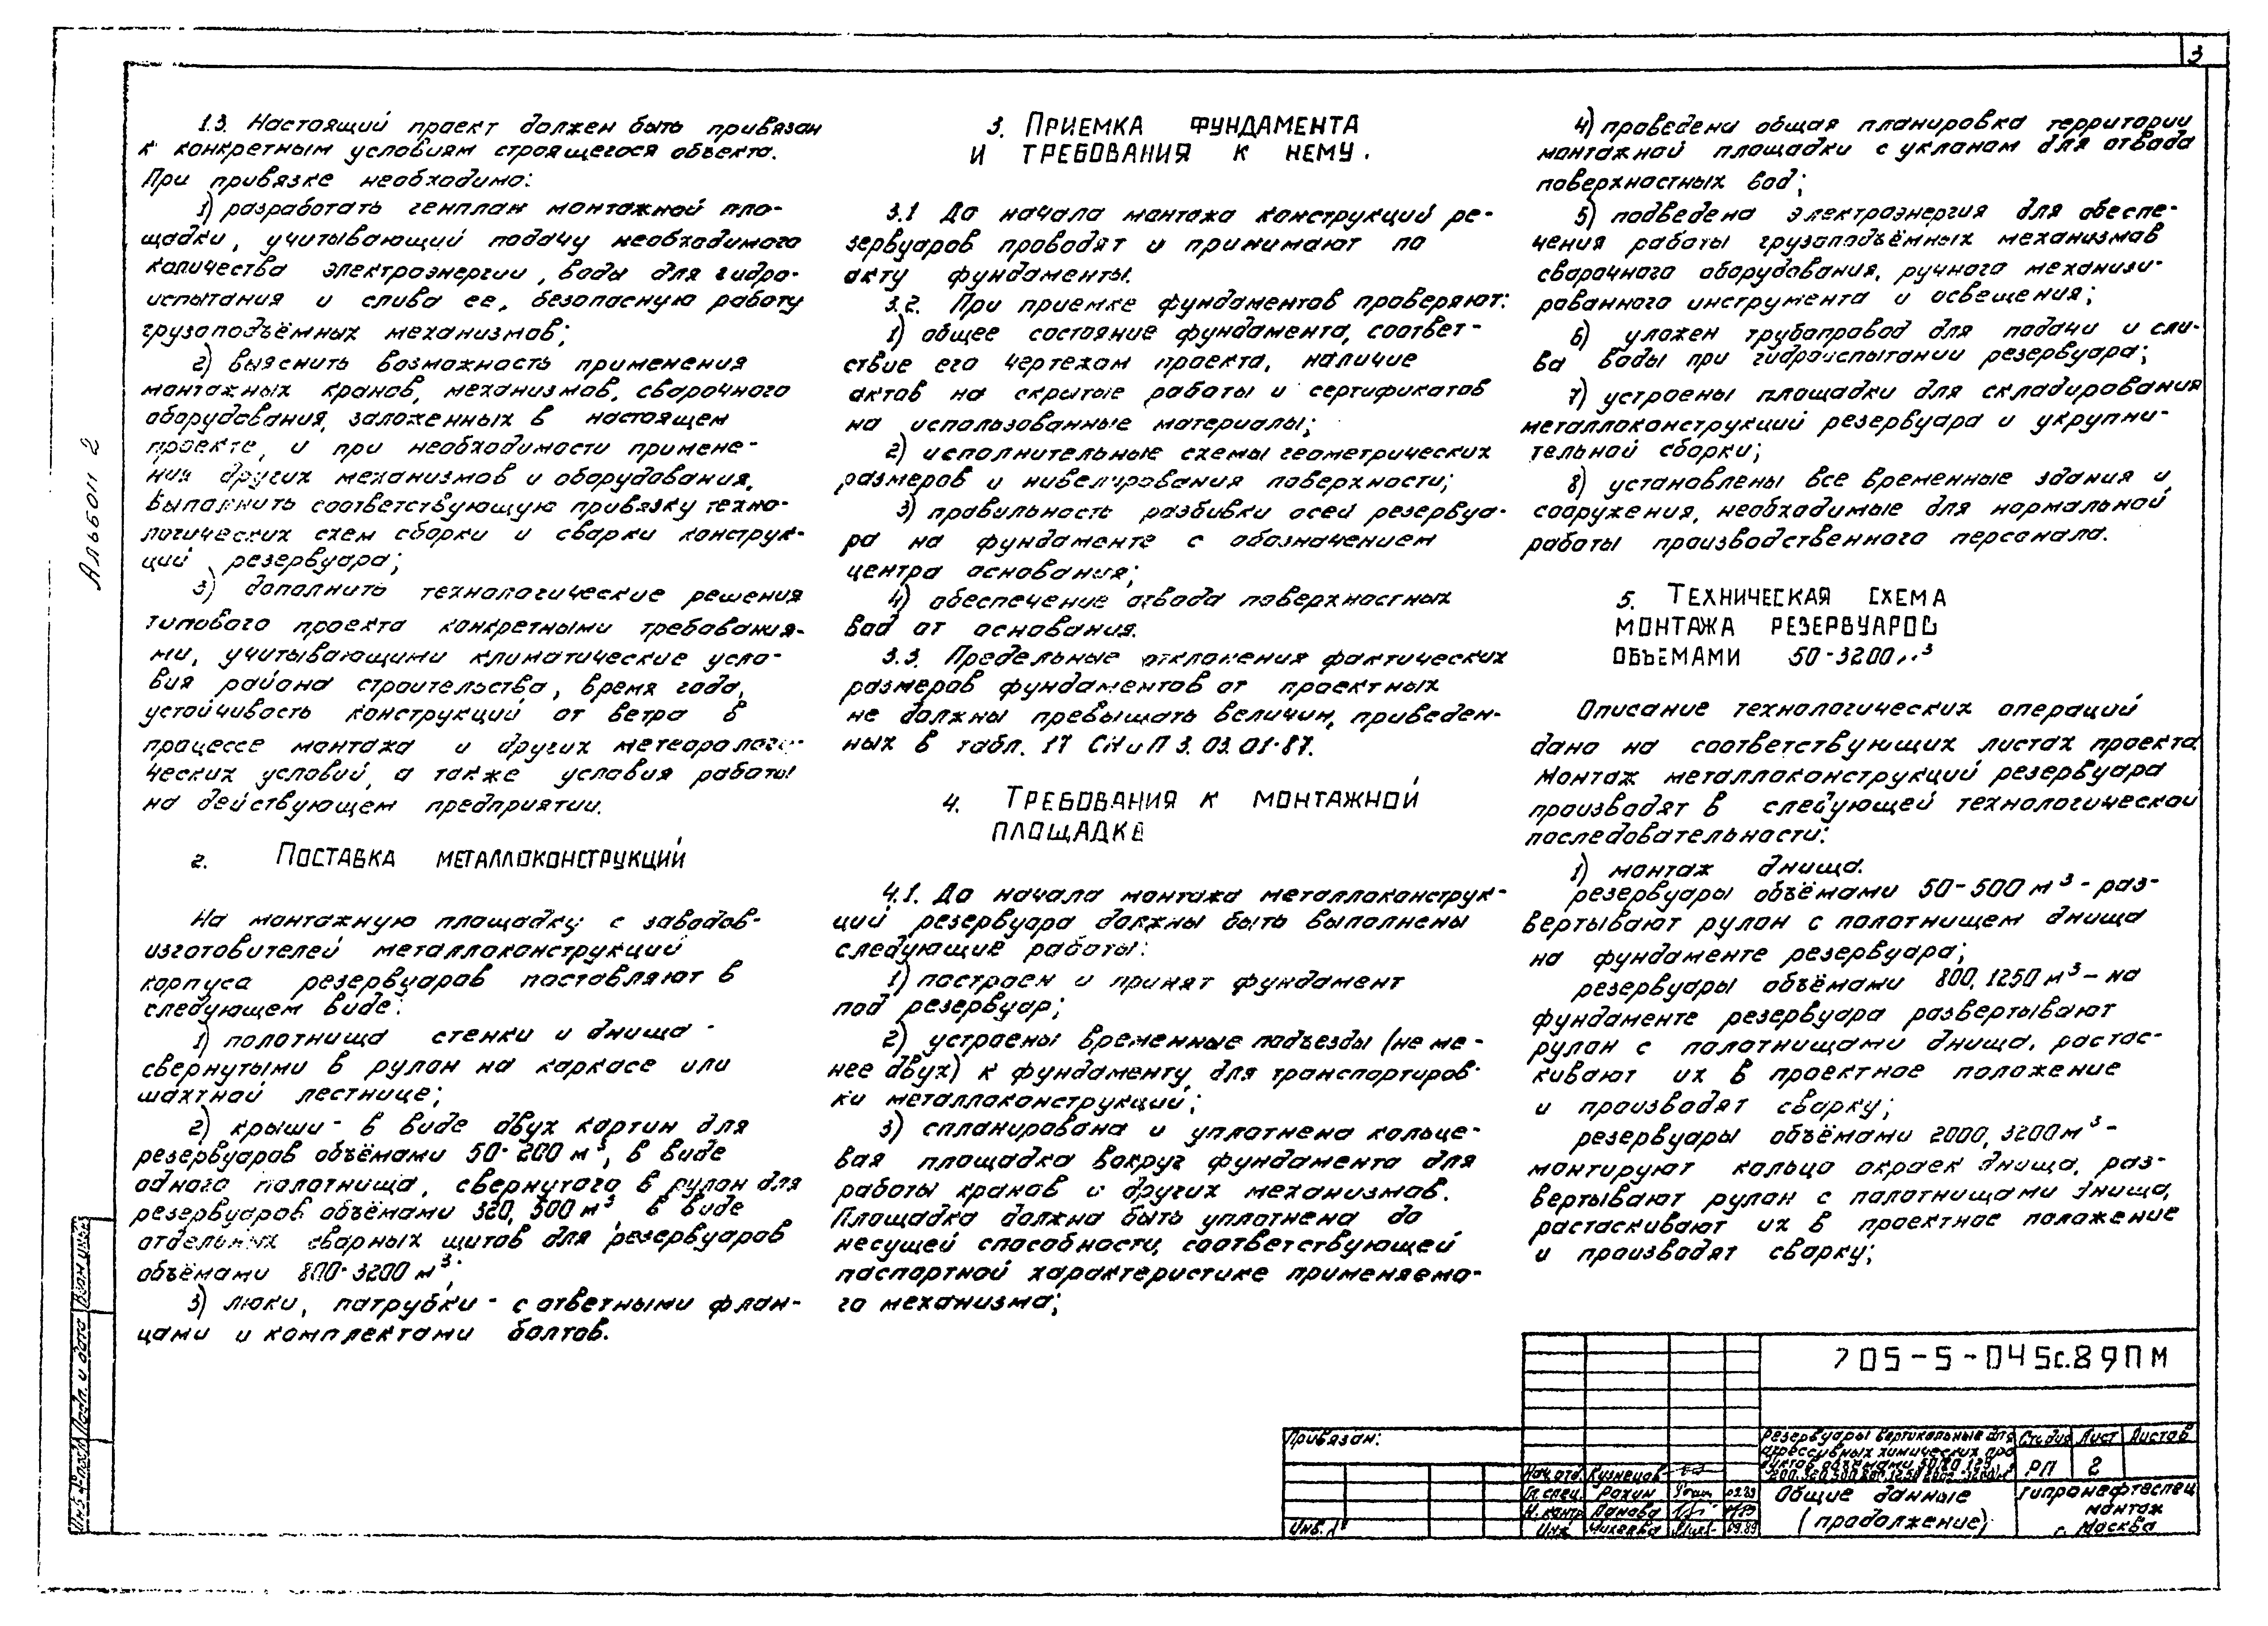 3
1.3. Настоящий проект должен быть привязан
к конкретным условиям строящегося объекта.
При привязке необходимо:
1) разработать генплан монтажной пло-
щадки, учитывающий подачу необходимого
количества электроэнергии, воды для гидро-
испытания и слива ее, безопасную работу
грузоподъёмных механизмов;
2) выяснить возможность применения
монтажных кранов, механизмов, сварочного
оборудования, заложенных в настоящем
проекте, и при необходимости примене-
ния других механизмов и оборудования,
выполнить соответствующую привязку техно-
логических схем сборки и сварки конструк-
ций резервуара;
3) дополнить технологические решения
типового проекта конкретными требования-
ми, учитывающими климатические усло-
вия района строительства, время года,
устойчивость конструкций от ветра в
процессе монтажа и других метеорологи-
ческих условий, а также условия работы
на действующем предприятии.
2. Поставка металлоконструкций
На монтажную площадку с заводов-
изготовителей металлоконструкций
корпуса резервуаров поставляют в
следующем виде:
1) полотнища стенки и днища -
свернутыми в рулон на каркасе или
шахтной лестнице;
2) крыши - в виде двух картин для
резервуаров объёмами 50-200 м³, в виде
одного полотнища, свернутого в рулон для
резервуаров объёмами 320, 500 м³, в виде
отдельных сварных щитов для резервуаров
объёмами 800-3200 м³;
3) люки, патрубки - с ответными флан-
цами и комплектами болтов.
3. Приемка фундамента
и требования к нему.
3.1 До начала монтажа конструкций ре-
зервуаров проводят и принимают по
акту фундаменты.
3.2. При приемке фундаментов проверяют:
1) общее состояние фундамента, соответ-
ствие его чертежам проекта, наличие
актов на скрытые работы и сертификатов
на использованные материалы;
2) исполнительные схемы геометрических
размеров и нивелирования поверхности;
3) правильность разбивки осей резервуа-
ра на фундаменте с обозначением
центра основания;
4) обеспечение отвода поверхностных
вод от основания.
3.3. Предельные отклонения фактических
размеров фундаментов от проектных
не должны превышать величин, приведен-
ных в табл. 17 СНиП 3.03.01-87.
4. Требования к монтажной
площадке
4.1. До начала монтажа металлоконструк-
ций резервуара должны быть выполнены
следующие работы:
1) построен и принят фундамент
под резервуар;
2) устроены временные подъезды (не ме-
нее двух) к фундаменту для транспортиров-
ки металлоконструкций;
3) спланирована и уплотнена кольце-
вая площадка вокруг фундамента для
работы кранов и других механизмов.
Площадка должна быть уплотнена до
несущей способности, соответствующей
паспортной характеристике применяемо-
го механизма;
4) проведена общая планировка территории
монтажной площадки с уклоном для отвода
поверхностных вод;
5) подведена электроэнергия для обеспе-
чения работы грузоподъёмных механизмов
сварочного оборудования, ручного механизи-
рованного инструмента и освещения;
6) уложен трубопровод для подачи и сли-
ва воды при гидроиспытании резервуара;
7) устроены площадки для складирования
металлоконструкций резервуара и укрупни-
тельной сборки;
8) установлены все временные здания и
сооружения, необходимые для нормальной
работы производственного персонала.
5. Техническая схема
монтажа резервуаров
объемами 50-3200 м³
Описание технологических операций
дано на соответствующих листах проекта
Монтаж металлоконструкций резервуара
производят в следующей технологической
последовательности:
1) монтаж днища.
резервуары объёмами 50-500 м³ - раз-
вертывают рулон с полотнищем днища
на фундаменте резервуара;
резервуары объёмами 800, 1250 м³ - на
фундаменте резервуара развертывают
рулон с полотнищами днища, растас-
кивают их в проектное положение
и производят сварку;
резервуары объёмами 2000, 3200 м³ -
монтируют кольцо окраек днища, раз-
вертывают рулон с полотнищами днища,
растаскивают их в проектное положение
и производят сварку;
Альбом 2
Инв. № подл. Подп. и дата Взам. инв. №
705-5-045с.89ПМ
Привязан:
Инв. №
Нач. отд. Кузнецов
Гл. спец. Рохин 09.89
Н. контр. Панова
Инж. 09.89
Резервуары вертикальные для
агрессивных химических про
дуктов объемами 50, 80, 125,
200, 320, 500, 800, 1250, 2000, 3200 м³
Стадия Лист Листов
РП 2
Общие данные
(продолжение)
Гипронефтеспец
монтаж
г. Москва